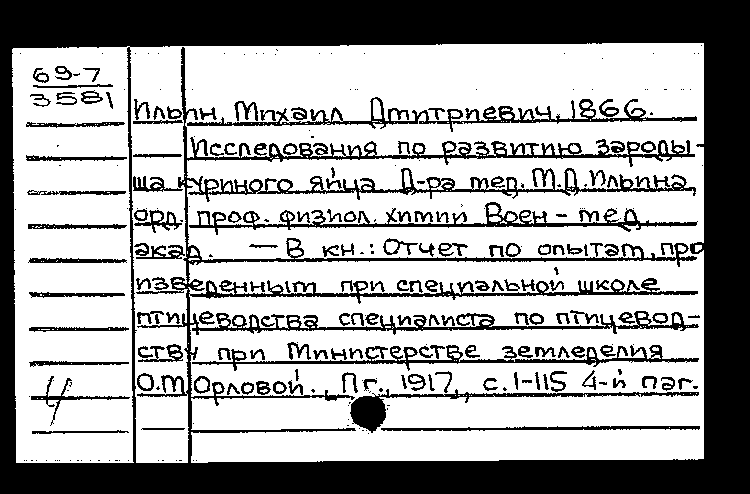 69-7
3581
Ильин, Михаил Дмитриевич, 1866.
Исследования по развитию зароды-
ша куриного яйца Д-ра мед. М.Д.Ильина,
орд. проф. физиол. химии Воен-мед.
акад. — В кн.: Отчет по опытам, про
изведенным при специальной школе
птицеводства специалиста по птицевод-
ству при Министерстве земледелия
О.М Орловой., Пг., 1917, с. 1-115 4-й паг.
4